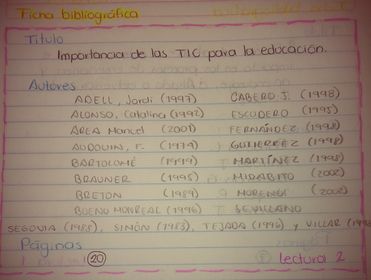 Ficha bibliográfica
Título
Importancia de las TIC para la educación.
Autores
ADELL, Jordi (1997) CABERO J. (1998)
ALONSO, Catalina (1992) ESCUDERO (1995)
AREA Manuel (2001) FERNÁNDEZ (1998)
AUDOUIN, F. GUTIERREZ (1998)
BARTOLOMÉ MARTÍNEZ (1998)
BRAUNER (1995) MIRABITO (2002)
BRETON (1989) (2002)
BUENO MONREAL (1996) SEVILLANO
SEGOVIA (1985), SIMÓN (1983), TEJADA (1996) y VILLAR
Páginas
20 lectura 2